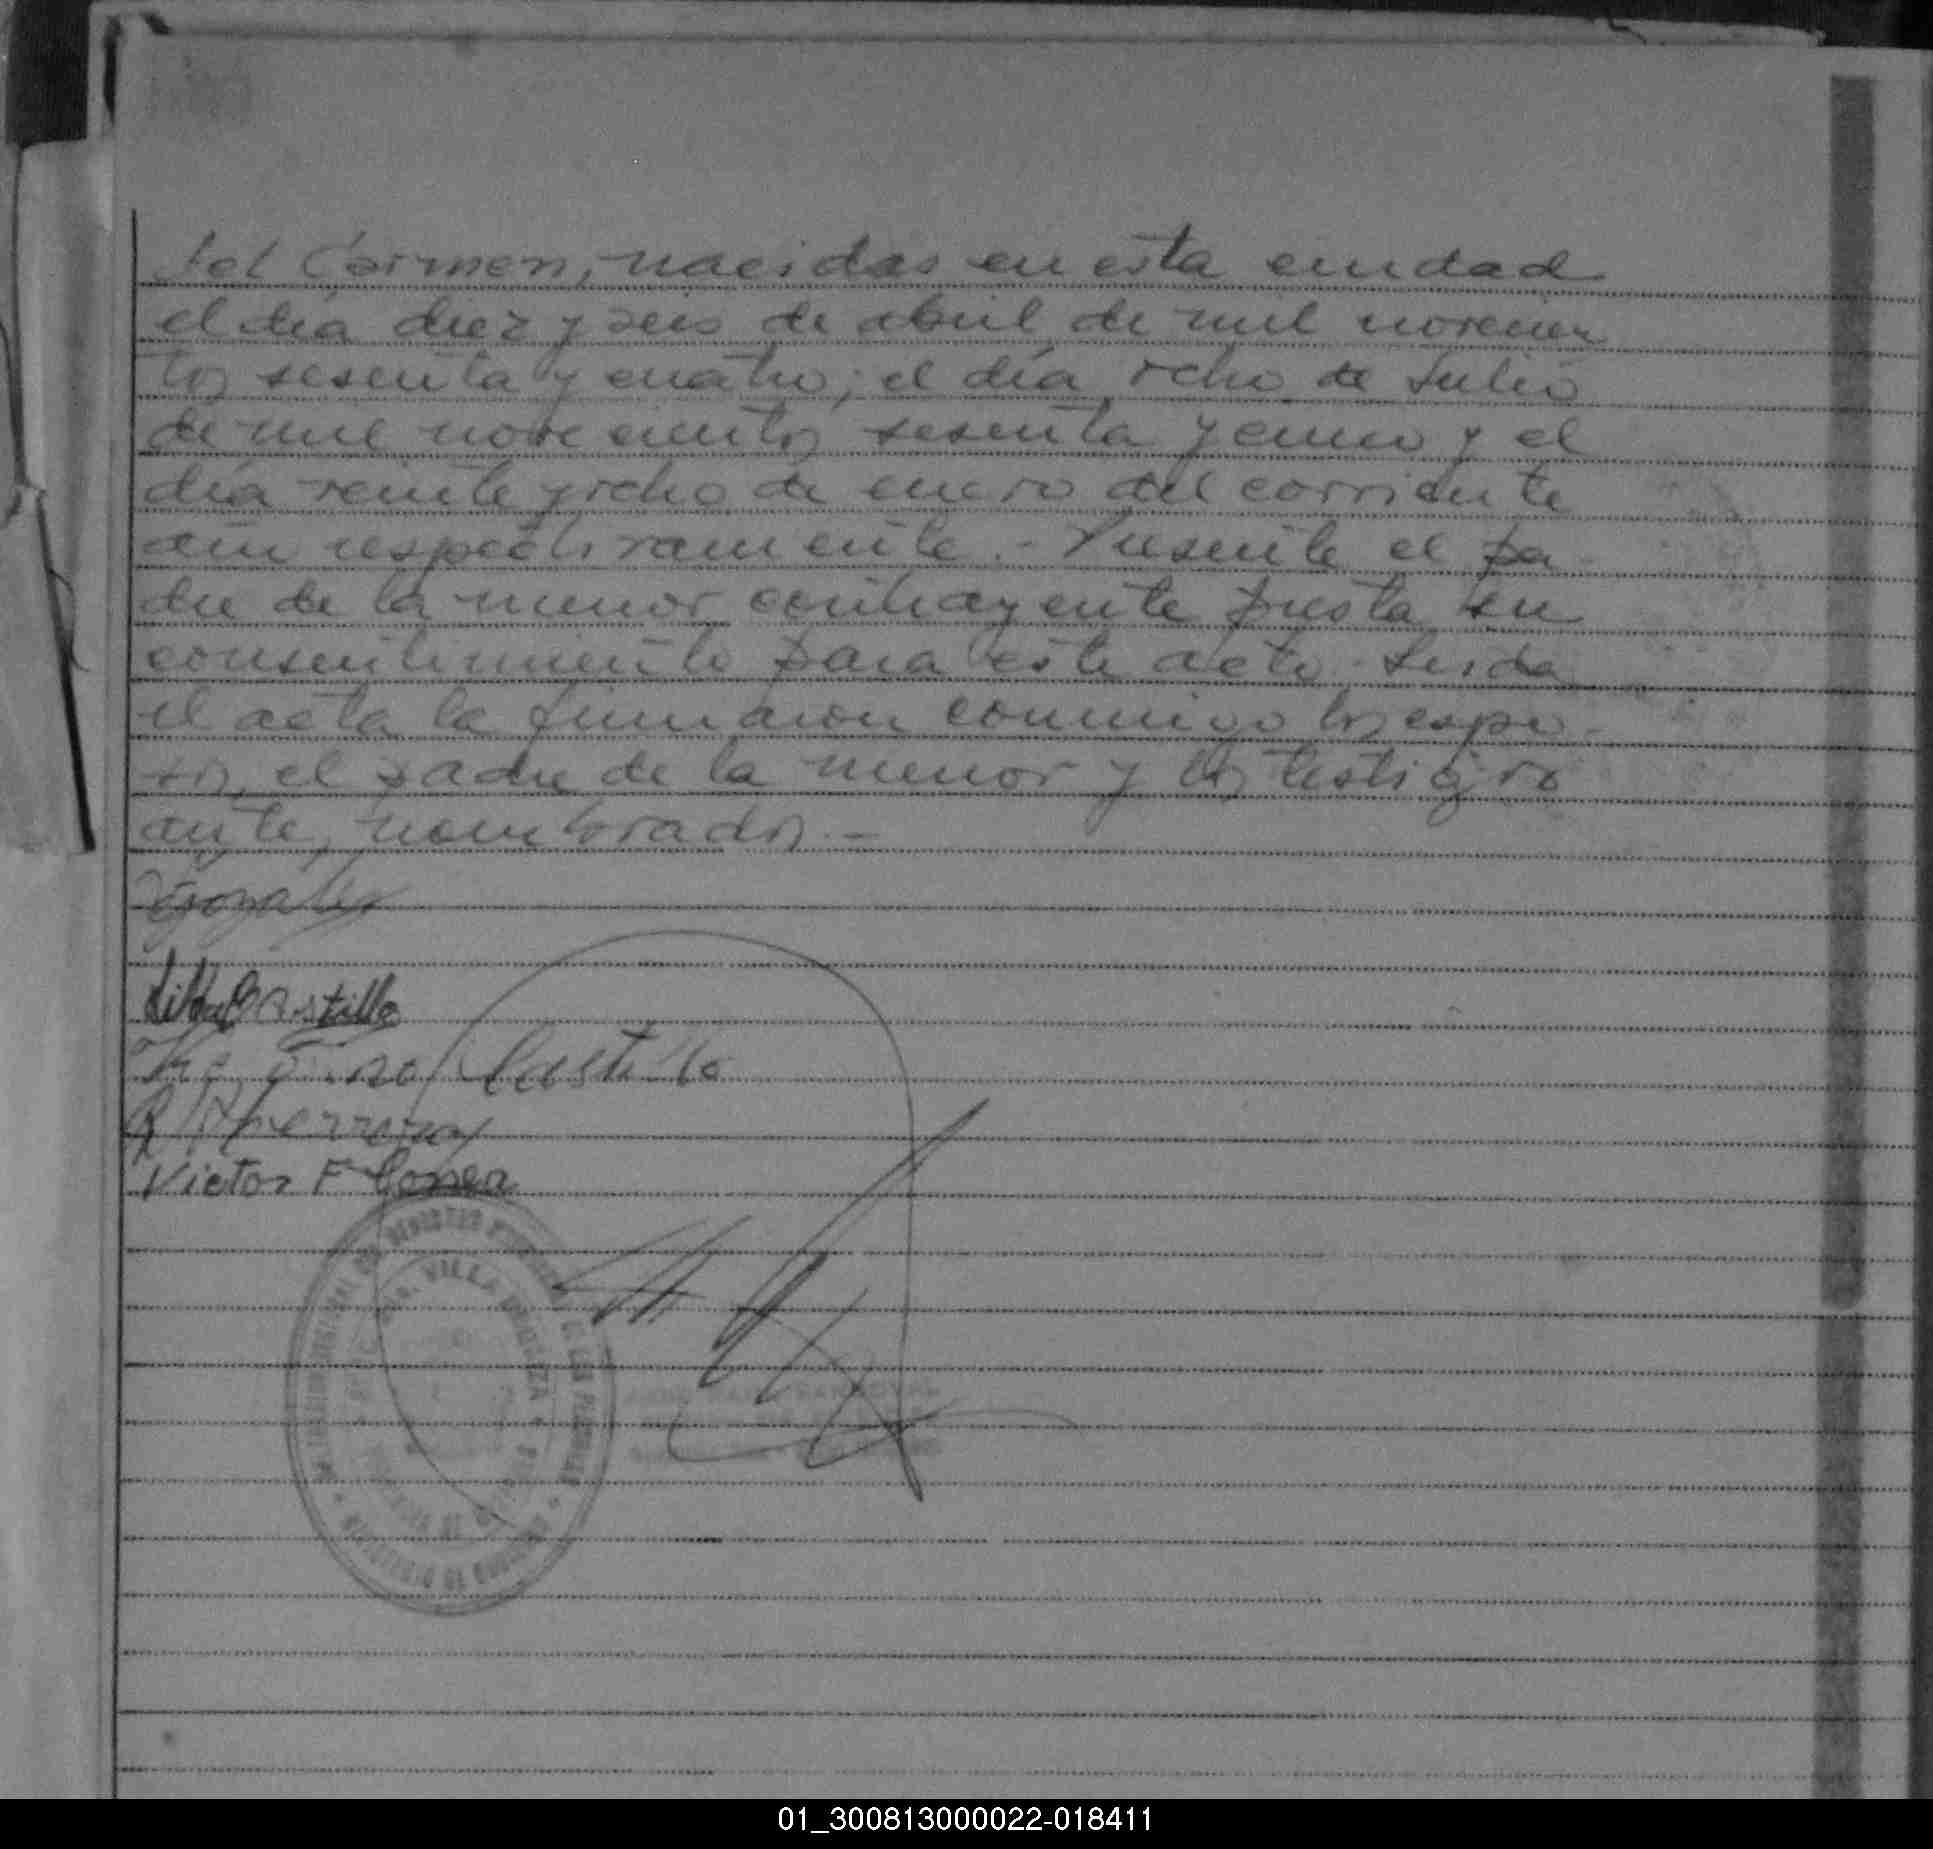 del Carmen, nacidas en esta ciudad
el día diez y seis de abril de mil novecien
tos sesenta y cuatro; el día ocho de Julio
de mil novecientos sesenta y cinco y el
día veinte y ocho de enero del corriente
año respectivamente.- Presente el pa
dre de la menor contrayente presta su
consentimiento para este acto. Leida
el acta la firmaron conmigo los espo-
sos, el padre de la menor y los testigos
antes nombrados.-
Castillo
Castillo
Victor F
VILLA
01_300813000022-018411